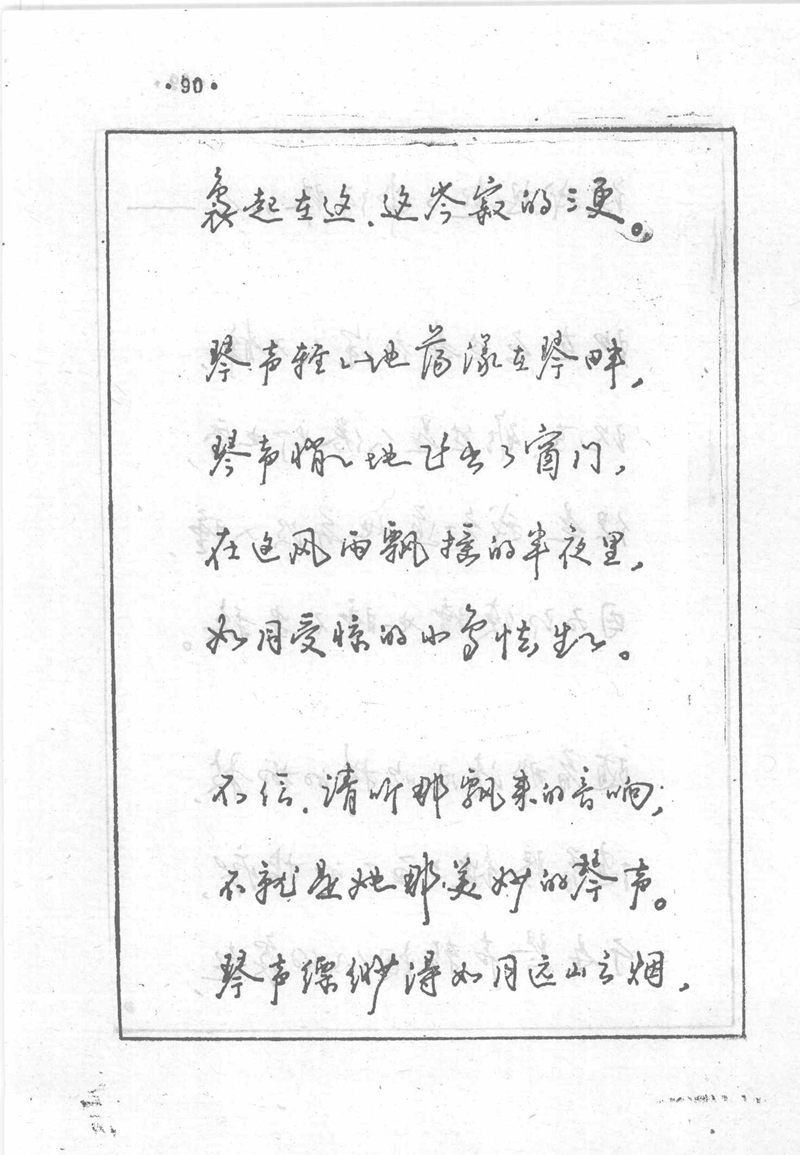 ·90·
袅起在这、这岑寂的三更。
琴声轻轻地荡漾在琴畔,
琴声悄悄地飞出了窗门,
在这风雨飘摇的半夜里,
如同受惊的小鸟怯生生。
不信、请听那飘来的音响,
不就是她那美妙的琴声。
琴声缥缈得如同远山云烟,